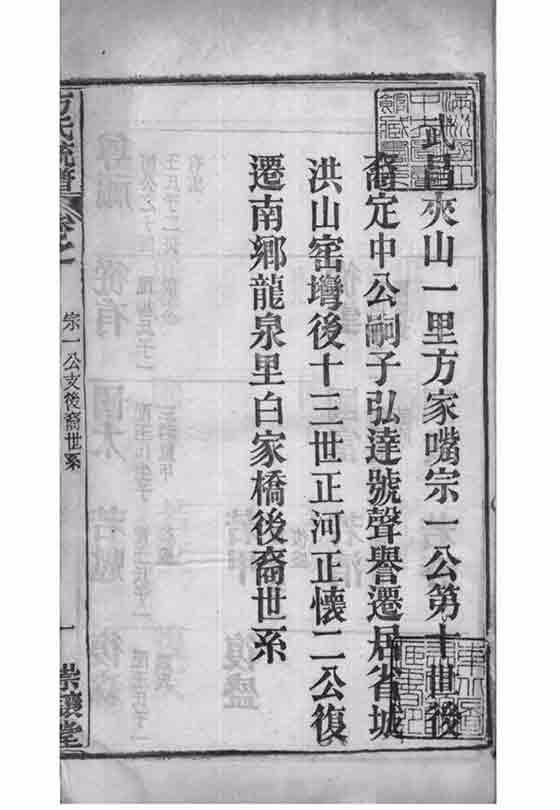 武昌夾山一里方家嘴宗一公第十世後
裔定中公嗣子弘達號聲譽遷居省城
洪山窑塆後十三世正河正懷二公復
遷南鄉龍泉里白家橋後裔世系
方氏統譜
卷之一
宗一公支後裔世系
一
崇讓堂